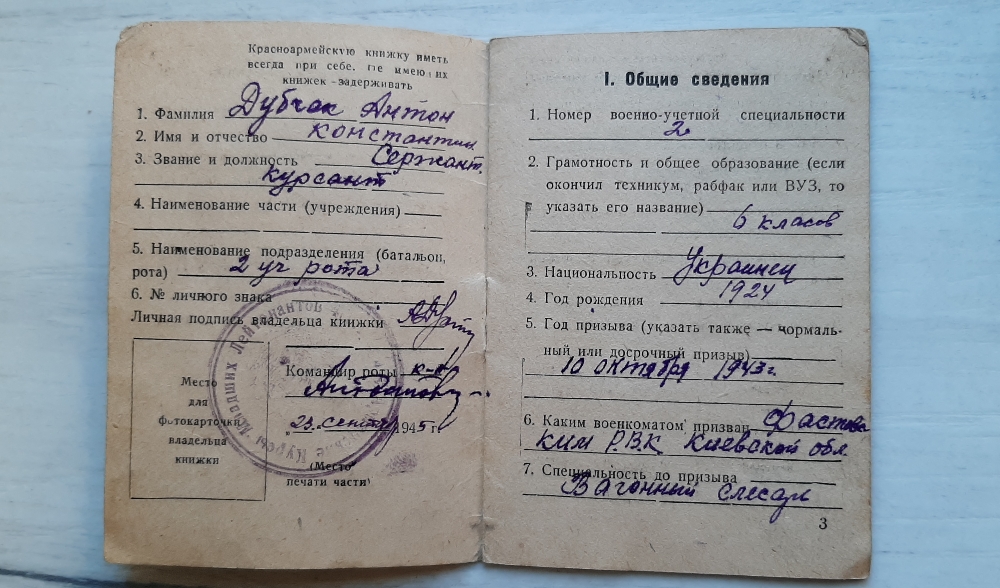 Красноармейскую книжку иметь
всегда при себе. Не имеющих
книжек - задерживать
1. Фамилия Дубчак Антон
2. Имя и отчество Константин.
3. Звание и должность Сержант.
курсант
4. Наименование части (учреждения)
5. Наименование подразделения (батальон,
рота) 2 уч рота
6. № личного знака
Личная подпись владельца книжки
Командир роты к-н
23 сентяб 1945 г.
(Место
печати части)
Место
для
фотокарточки
владельца
книжки
Курсы Младших Лейтенантов
I. Общие сведения
1. Номер военно-учетной специальности
2
2. Грамотность и общее образование (если
окончил техникум, рабфак или ВУЗ, то
указать его название)
6 класов
3. Национальность Украинец
4. Год рождения 1924
5. Год призыва (указать также — нормаль-
ный или досрочный призыв)
10 октября 1943 г.
6. Каким военкоматом призван Фастовс
ким Р.В.К. Киевской обл.
7. Специальность до призыва
Вагонный слесарь
3